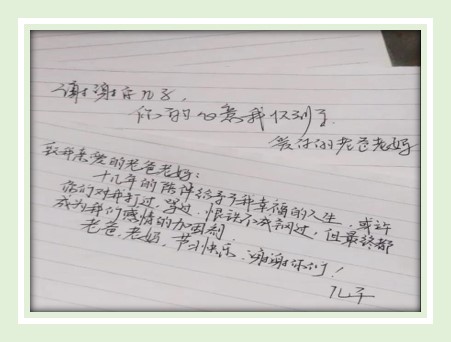 谢谢你儿子,
你的心意我收到了.
爱你的老爸老妈
致我亲爱的老爸老妈:
十几年的陪伴给予了我幸福的人生,或许
你们对我打过,骂过,恨铁不成钢过,但最终都
成为我们感情的加固剂
老爸,老妈,节日快乐,谢谢你们!
儿子